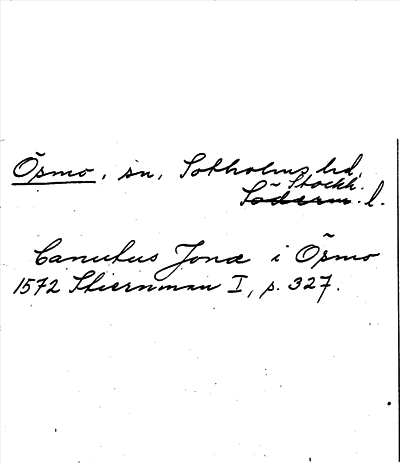 Ösmo, sn, Sotholms hd,
Stockh.
Söderm. l.
Canutus Jonæ i Ösmo
1572 Stiernman I, p. 327.